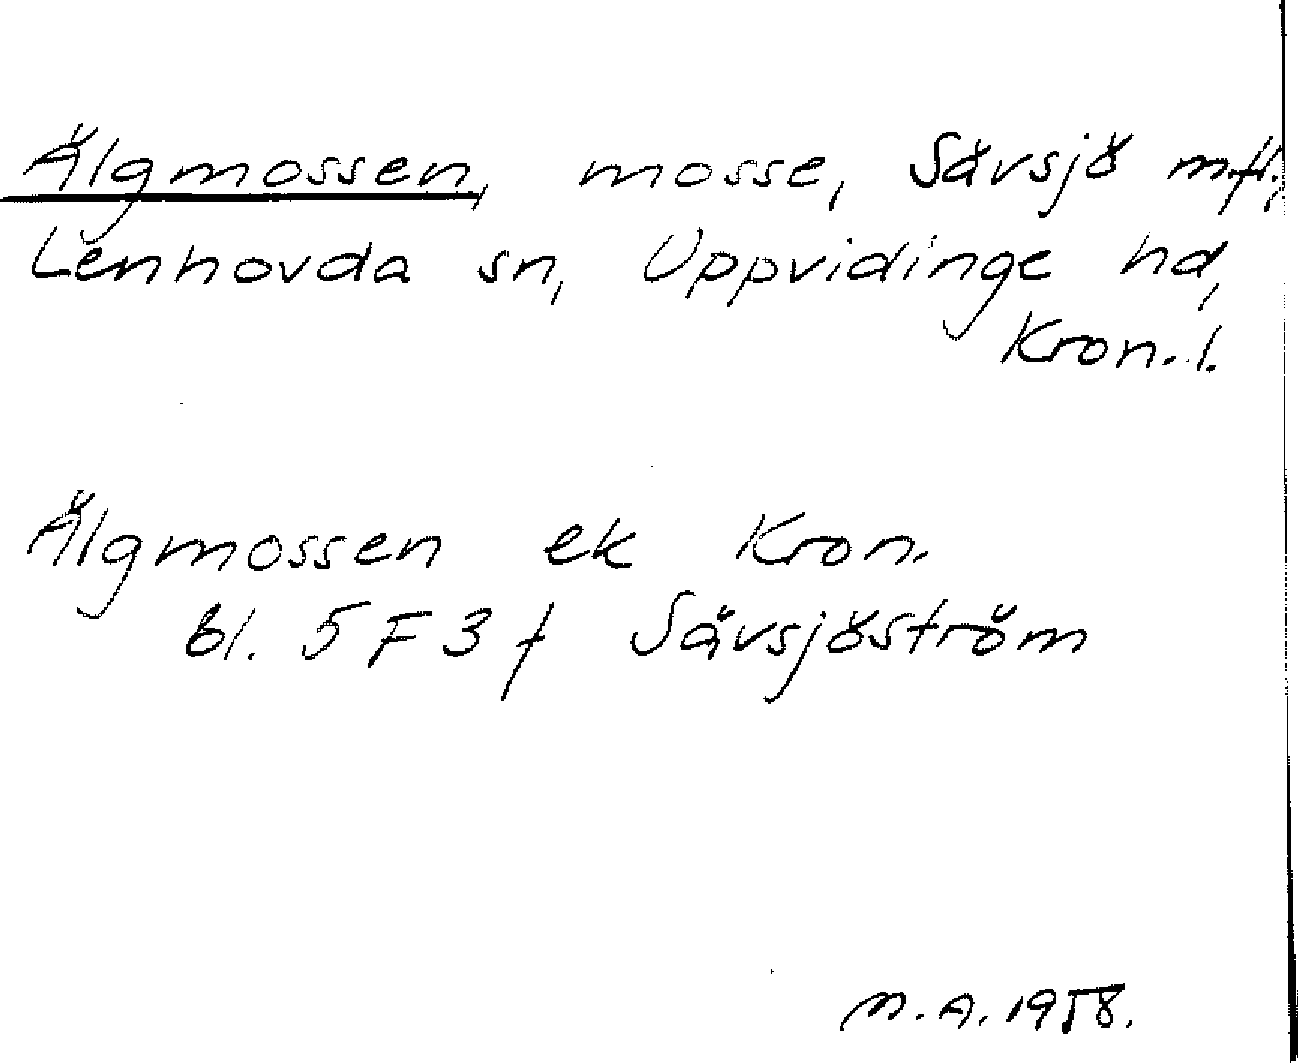 Älgmossen, mosse, Sävsjö m.fl.,
Lenhovda sn, Uppvidinge hd,
Kron. l.
Älgmossen ek Kron.
bl. 5 F 3 f Sävsjöström
M.A. 1958.